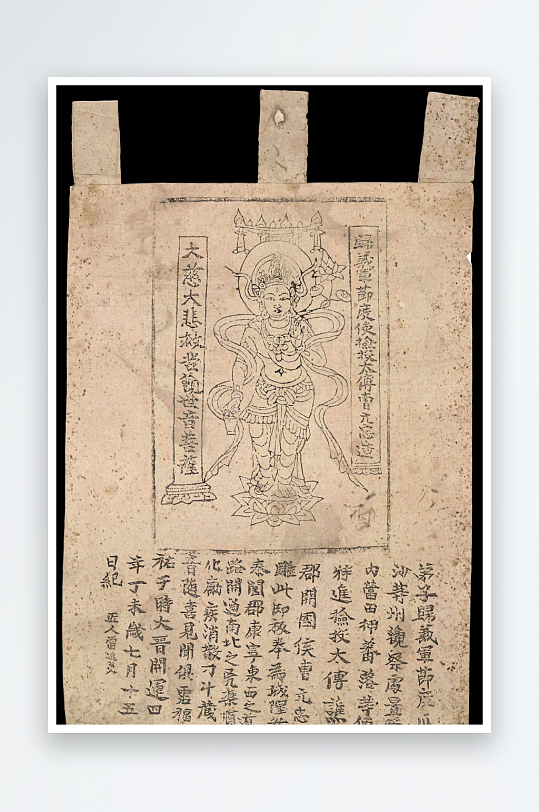 歸義軍節度使檢校太傅曹元忠造
大慈大悲救苦觀世音菩薩
弟子歸義軍節度
沙等州觀察處置
內營田押蕃落等使
特進檢校太傅譙
郡開國侯曹元忠
雕此印板奉為城隍
泰闔郡康寧東西之道
路開通南北之凶渠順
化癘疾消散刁斗藏
音隨喜見聞俱霑福
祐于時大晉開運四
年丁未歲七月十五
日紀 匠人雷延美